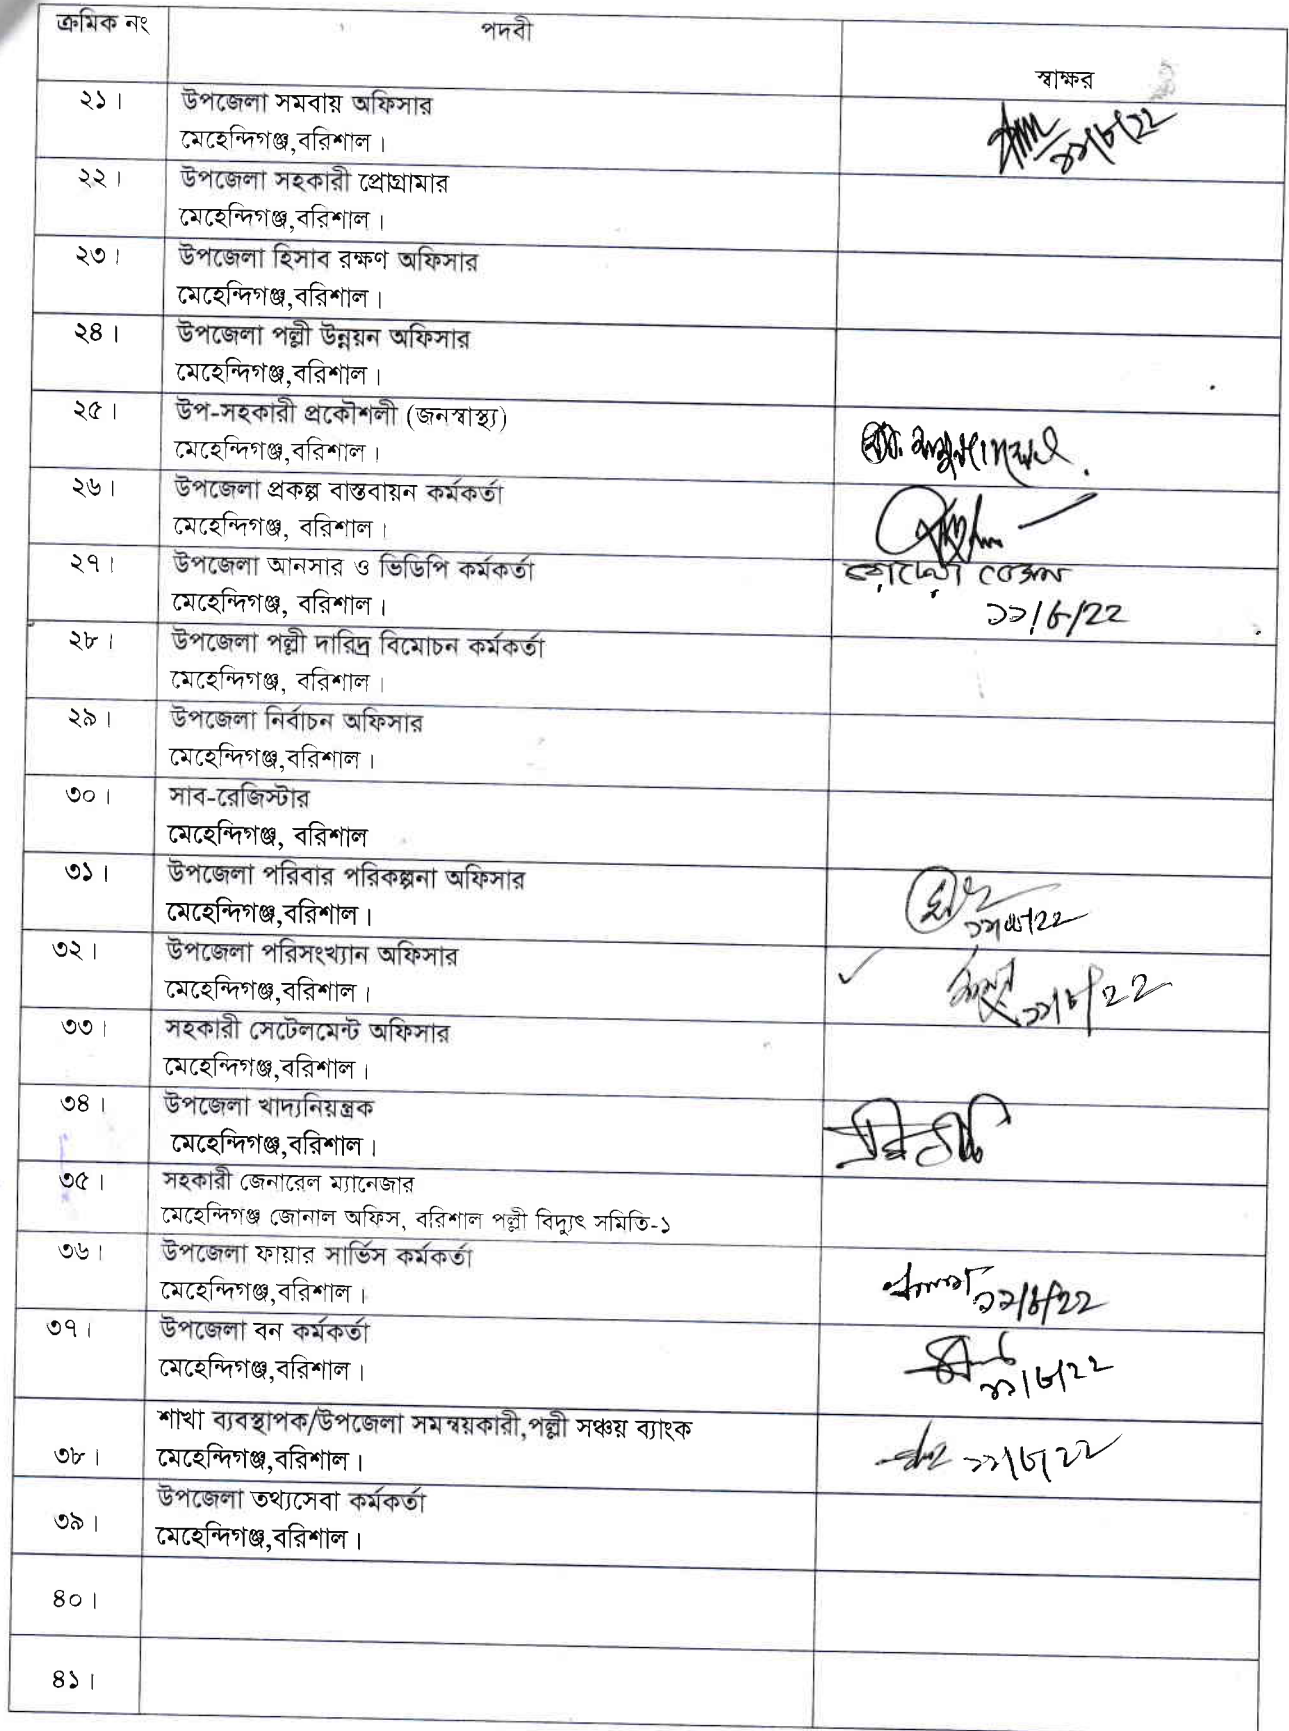 ক্রমিক নং পদবী স্বাক্ষর
২১। উপজেলা সমবায় অফিসার
মেহেন্দিগঞ্জ,বরিশাল।
২২। উপজেলা সহকারী প্রোগ্রামার
মেহেন্দিগঞ্জ,বরিশাল।
২৩। উপজেলা হিসাব রক্ষণ অফিসার
মেহেন্দিগঞ্জ,বরিশাল।
২৪। উপজেলা পল্লী উন্নয়ন অফিসার
মেহেন্দিগঞ্জ,বরিশাল।
২৫। উপ-সহকারী প্রকৌশলী (জনস্বাস্থ্য)
মেহেন্দিগঞ্জ,বরিশাল।
২৬। উপজেলা প্রকল্প বাস্তবায়ন কর্মকর্তা
মেহেন্দিগঞ্জ, বরিশাল।
২৭। উপজেলা আনসার ও ভিডিপি কর্মকর্তা
মেহেন্দিগঞ্জ, বরিশাল। ১১/৮/২২
২৮। উপজেলা পল্লী দারিদ্র বিমোচন কর্মকর্তা
মেহেন্দিগঞ্জ, বরিশাল।
২৯। উপজেলা নির্বাচন অফিসার
মেহেন্দিগঞ্জ,বরিশাল।
৩০। সাব-রেজিস্টার
মেহেন্দিগঞ্জ, বরিশাল
৩১। উপজেলা পরিবার পরিকল্পনা অফিসার
মেহেন্দিগঞ্জ,বরিশাল।
৩২। উপজেলা পরিসংখ্যান অফিসার
মেহেন্দিগঞ্জ,বরিশাল। ১১/৮/২২
৩৩। সহকারী সেটেলমেন্ট অফিসার
মেহেন্দিগঞ্জ,বরিশাল।
৩৪। উপজেলা খাদ্যনিয়ন্ত্রক
মেহেন্দিগঞ্জ,বরিশাল।
৩৫। সহকারী জেনারেল ম্যানেজার
মেহেন্দিগঞ্জ জোনাল অফিস, বরিশাল পল্লী বিদ্যুৎ সমিতি-১
৩৬। উপজেলা ফায়ার সার্ভিস কর্মকর্তা
মেহেন্দিগঞ্জ,বরিশাল। ১১/৮/২২
৩৭। উপজেলা বন কর্মকর্তা
মেহেন্দিগঞ্জ,বরিশাল। ১১/৮/২২
শাখা ব্যবস্থাপক/উপজেলা সমন্বয়কারী,পল্লী সঞ্চয় ব্যাংক
৩৮। মেহেন্দিগঞ্জ,বরিশাল। ১১/৮/২২
উপজেলা তথ্যসেবা কর্মকর্তা
৩৯। মেহেন্দিগঞ্জ,বরিশাল।
৪০।
৪১।